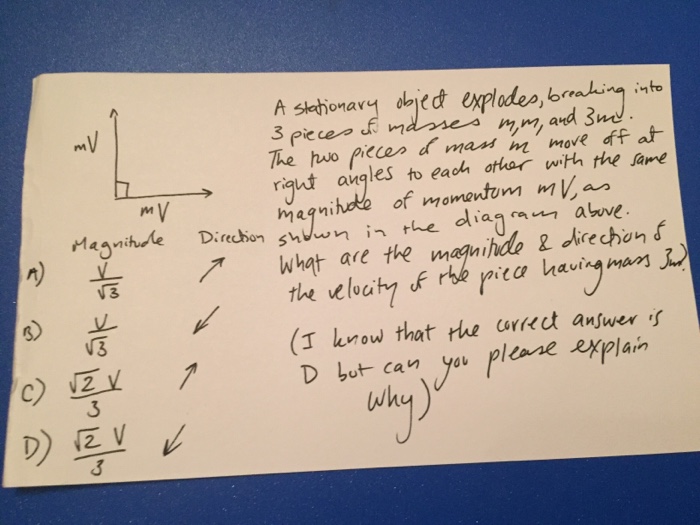 mV
mV
A stationary object explodes, breaking into
3 pieces of masses m, m, and 3m.
The two pieces of mass m move off at
right angles to each other with the same
magnitude of momentum mV, as
shown in the diagram above.
What are the magnitude & direction of
the velocity of the piece having mass 3m?
(I know that the correct answer is
D but can you please explain
why)
Magnitude Direction
A) V/√3 ↗
B) V/√3 ↙
C) √2 V/3 ↗
D) √2 V/3 ↙